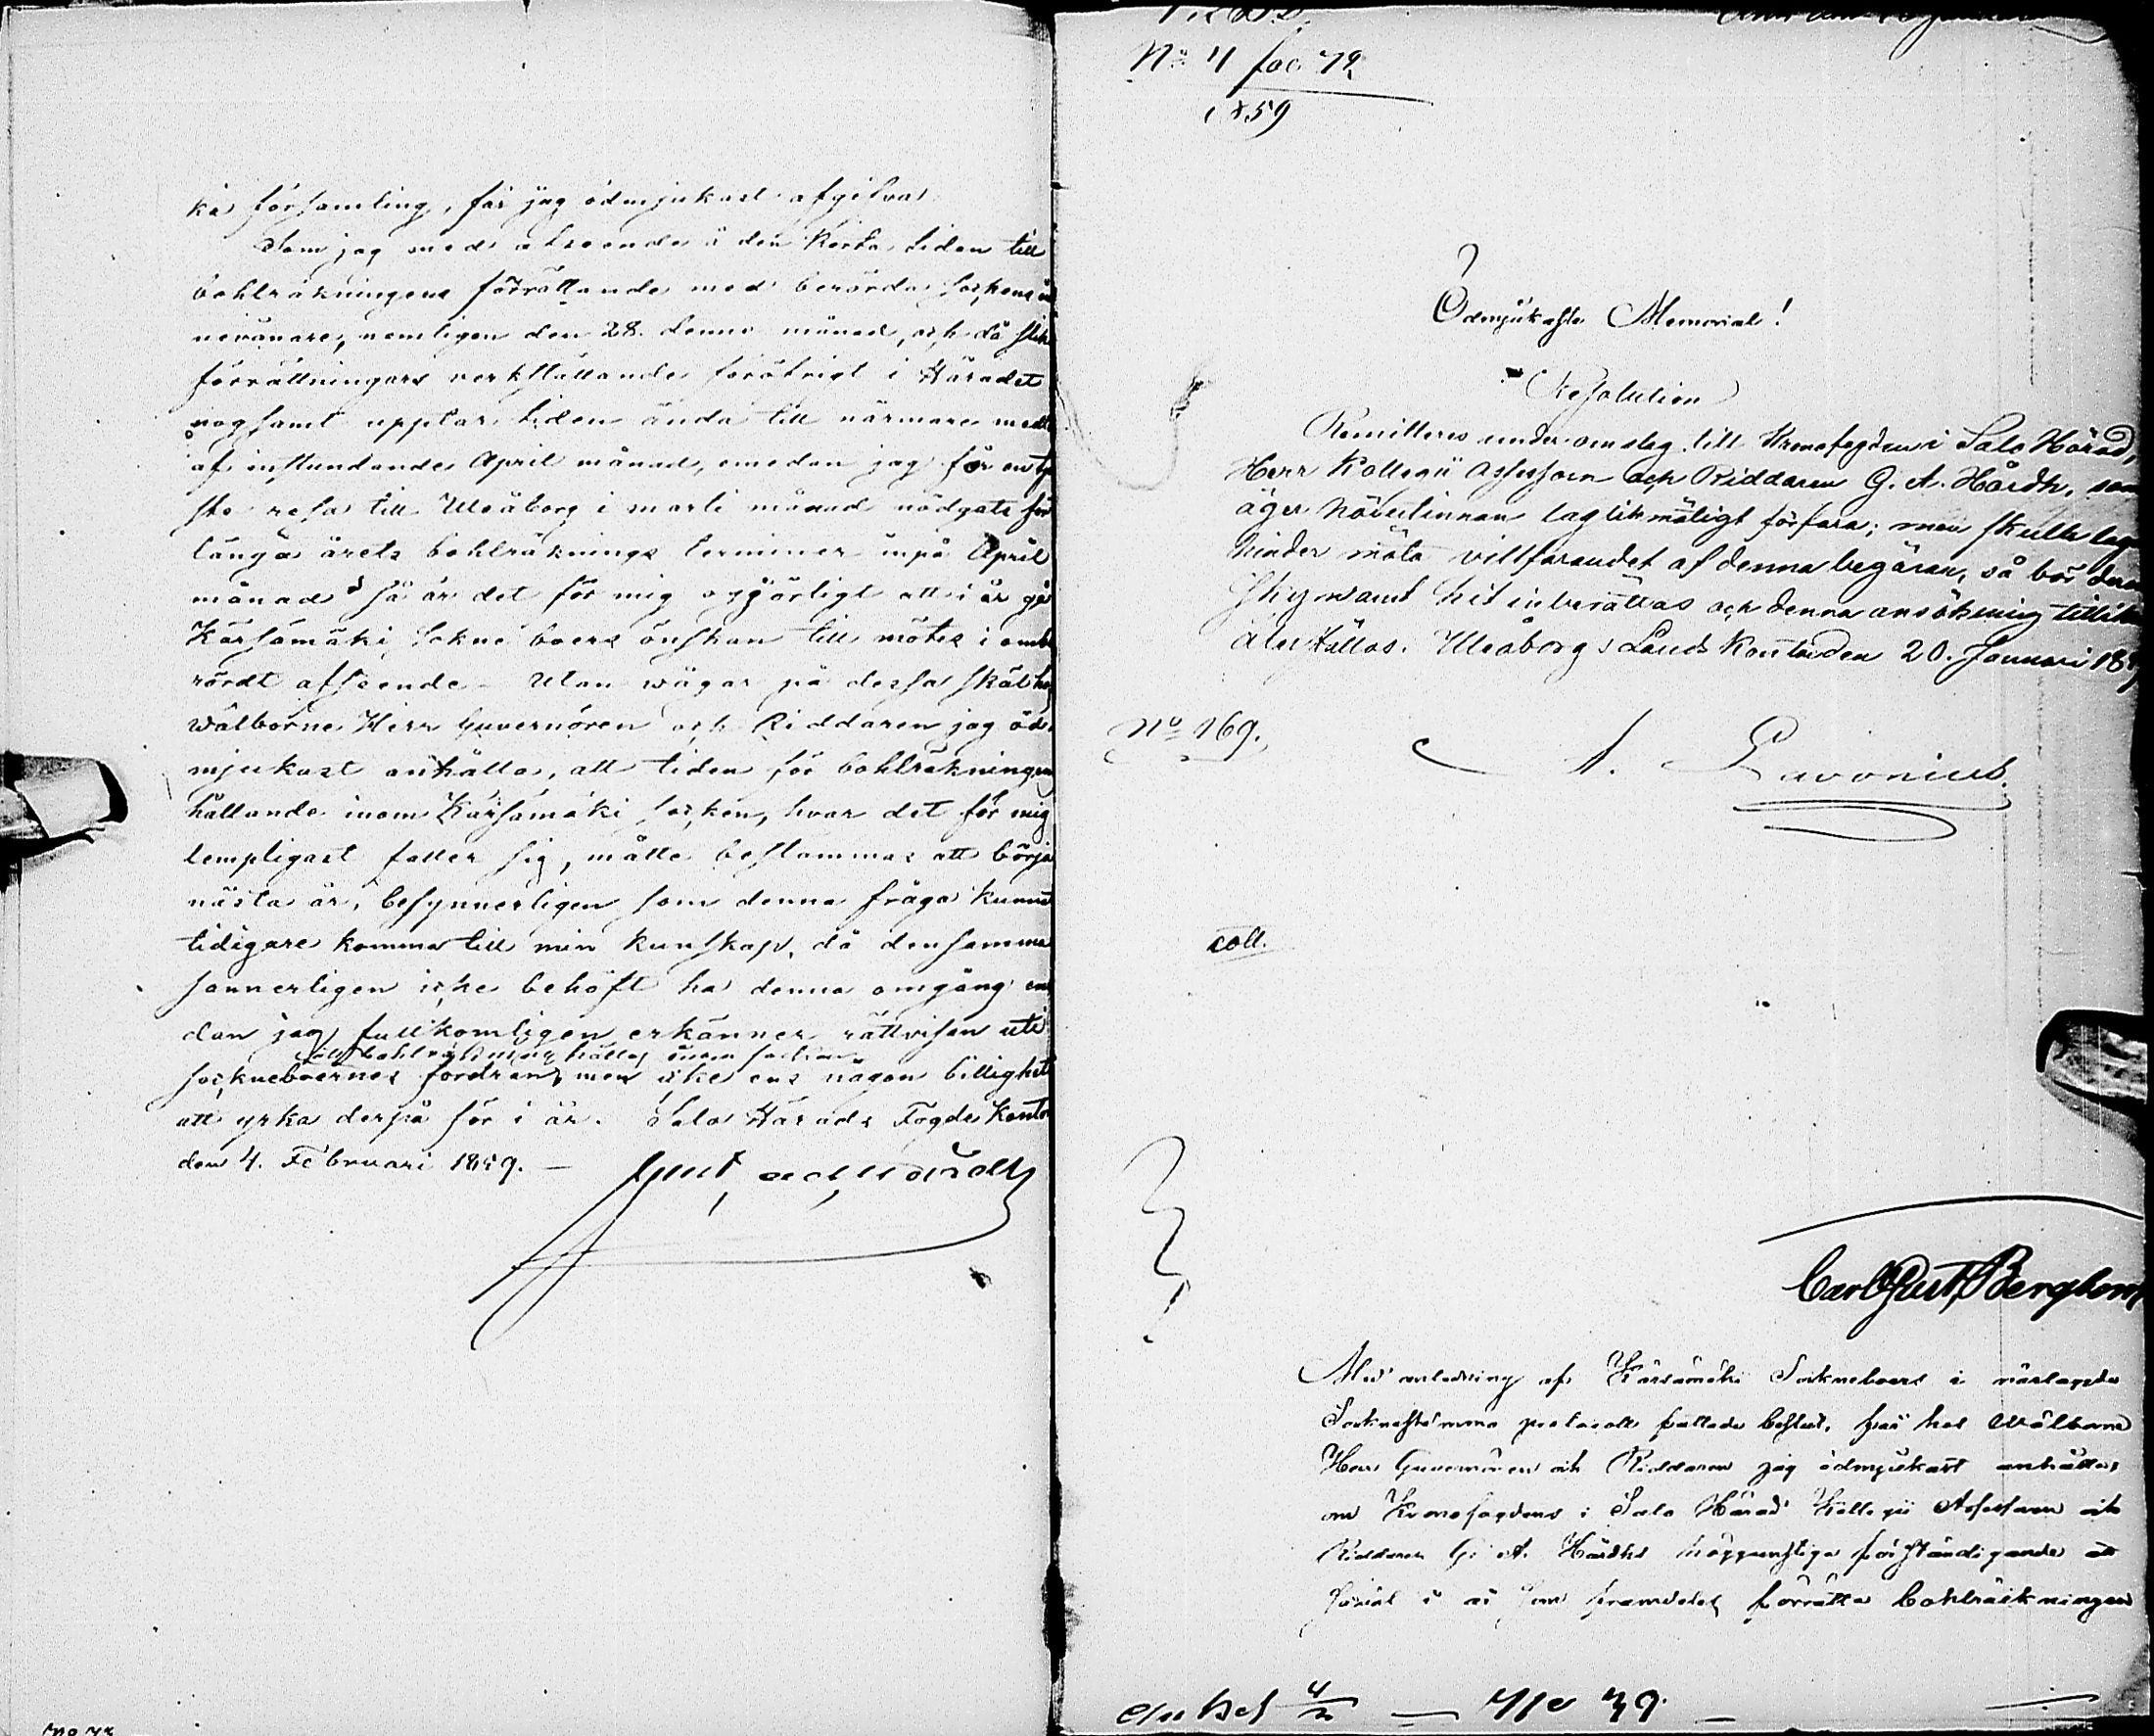 ka församling, får jag ödmjukast afgifva
Som jag med afseende å den korta tiden till
bohlräkningens förrättande med berörda sockens in
nevånare, nemligen den 28. denne månad, och då slike
förrättningars verkställande föröfrigt i Häradet
nogsamt upptar tiden ända till närmare medl
af instundande April månad, emedan jag för en tje
ste resa till Uleåborg i marti månad nödgats för
länga årets bohlräknings terminer inpå April
månad så är det för mig ogörligt att i år gå
Kärsämäki Sokne boers önskan till mötes i ombe
rördt afseende – Utan wågar på dessa skäl hos
Wälborne Herr Guvernören och Riddaren jag öd
mjukast anhålla, att tiden för bohlräkningens
hållande inom Kärsämäki socken, hvar det för mig
lempligast faller sig, måtte bestämmas att börja
nästa år, besynnerligen som denna fråga kunnat
tidigare komma till min kunskap, då densamma
sannerligen icke behöft ha denna omgång em
dan jag fullkomligen erkänner rättvisan uti
att bohlräkningen hålles inom socknen
sockneboernes fordran, men icke ens någon billighet
att yrka derpå för i år. Salo Härads Fogde Kontor
den 4. Februari 1859. –
No 4 fol 79
1859
Ödmjukaste Memorial!
Resolution
Remitteres under omslag till Kronofogden i Salo Härad,
Herr Kollegii Assessorn och Riddaren G. A. Hårdh, som
äger häruti lagliknäligt förfara; men skulle laga
hinder möta villfarandet af denna begäran, så bör derom
skyndsamt hit inberättas och denna ansökning tillika
återställas. Uleåborgs Lands Kontor den 20. Januari 185
No 169.
A. Lavonius.
coll.
Carl Gust. Bergbom
Med anledning af Kärsämäki Sockneboers i närlagde
Sockenstämma protocoll fattade beslut, får hos Wälborne
Herr Guvernören och Riddaren jag ödmjukast anhålla,
om Kronofogdens i Salo Härad Kollegii Assessoren och
Riddaren G. A. Hårdhs höggunstiga förständigande att
såväl i år som framdeles förrätta bohlräkningen